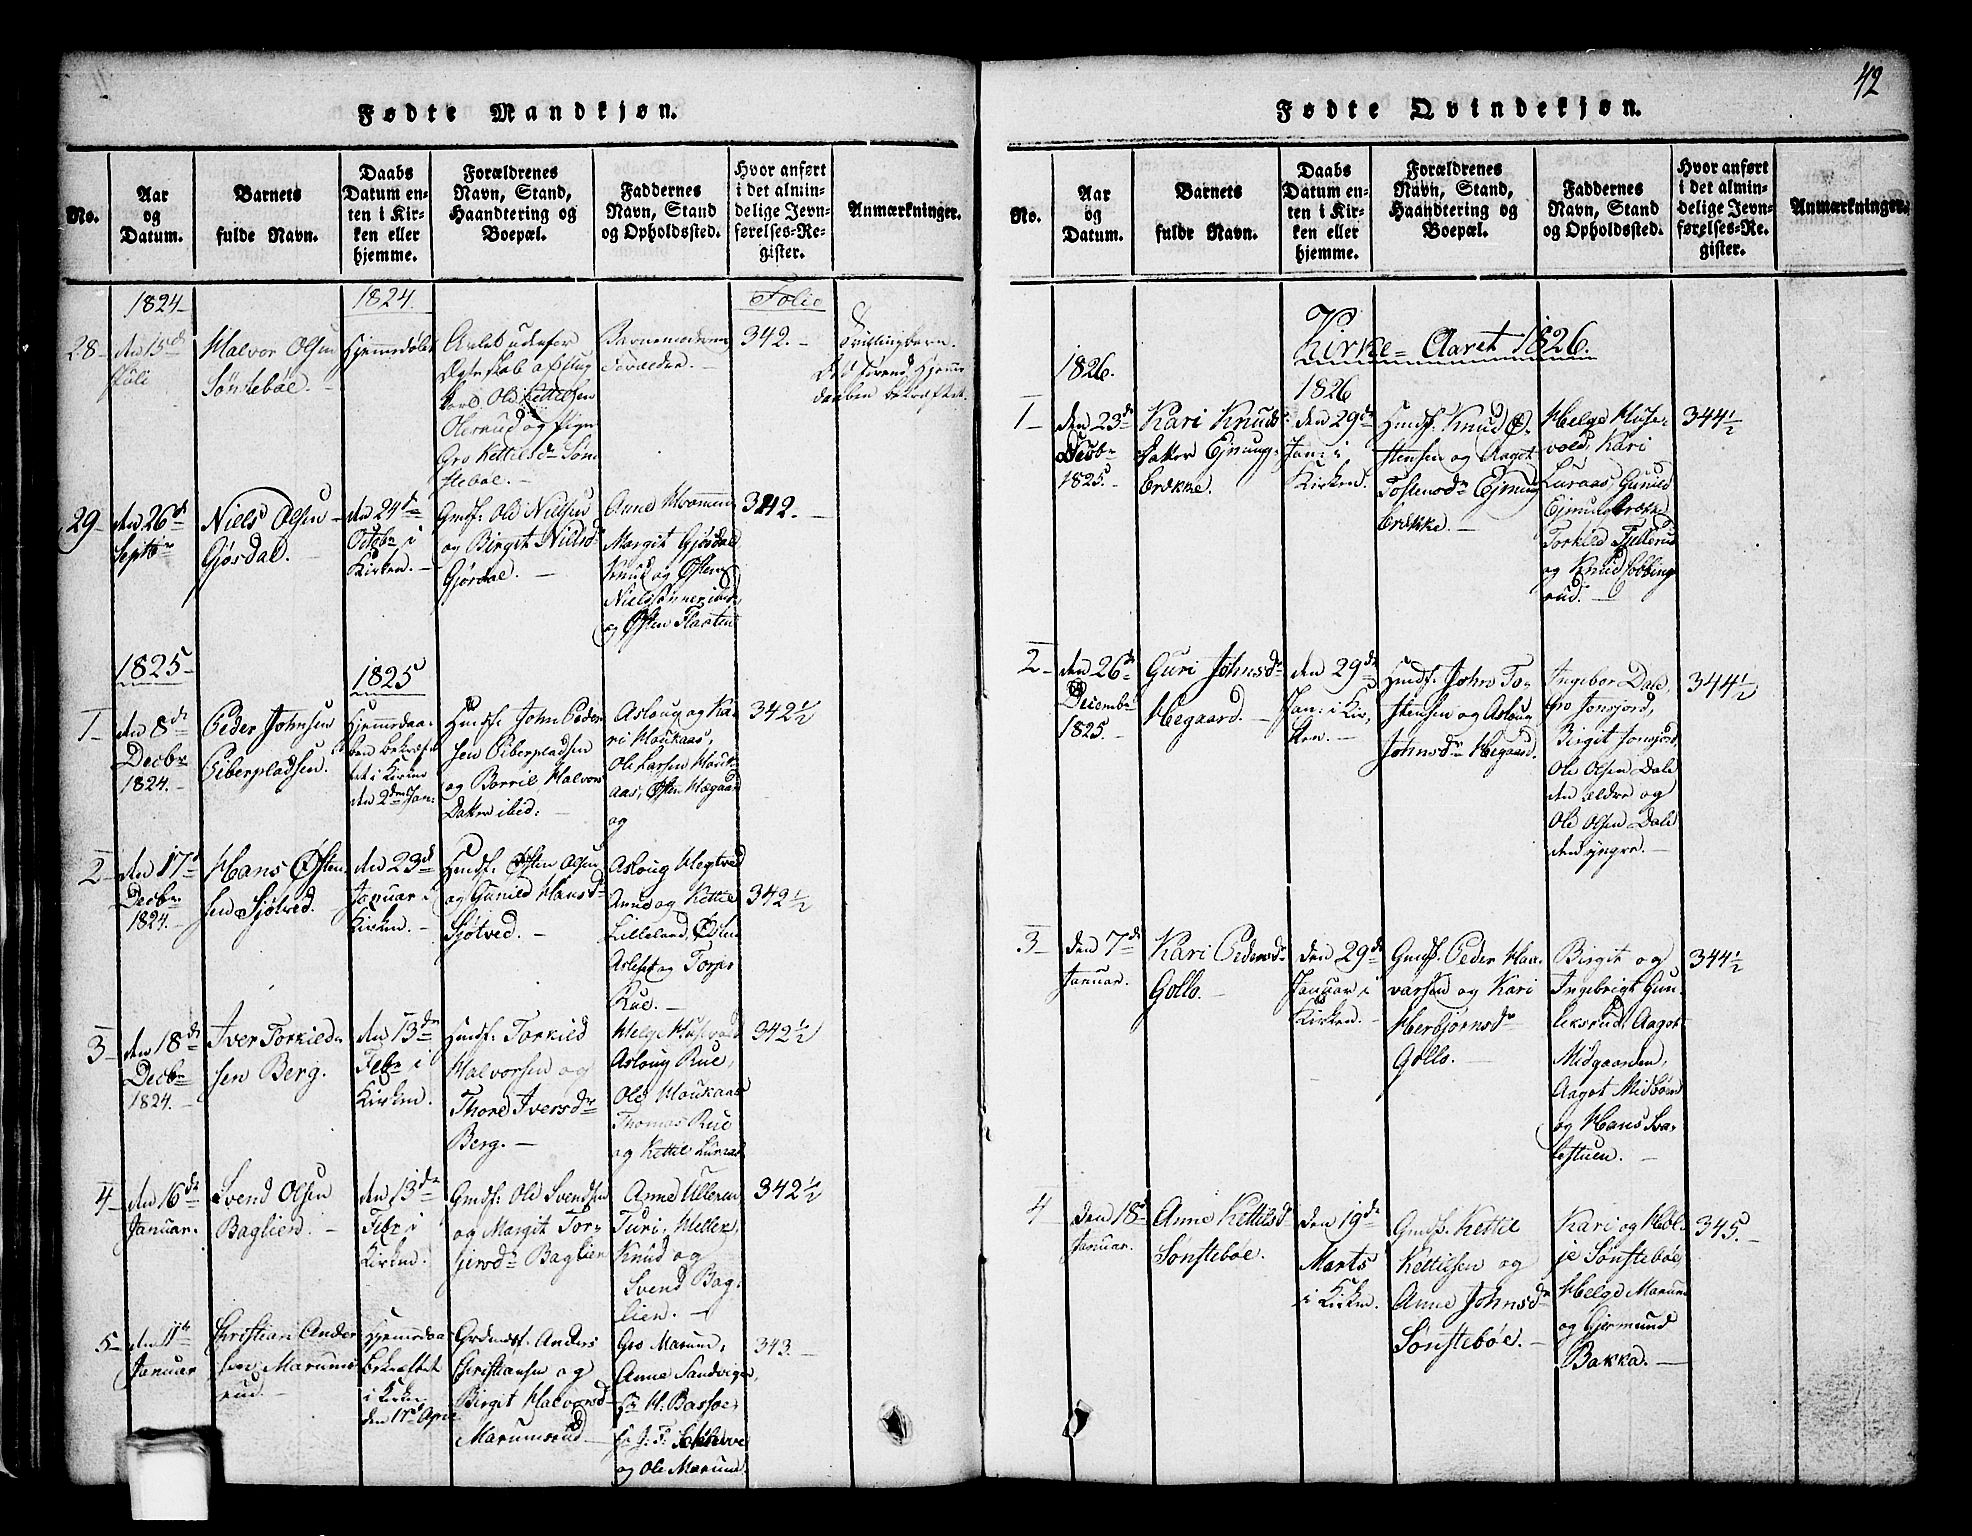 42
Fødte Mandkjøn.
No.
Aar
og
Datum.
Barnets
fulde Navn.
Daabs
Datum en-
ten i Kir-
ken eller
hjemme.
Forældrenes
Navn, Stand,
Haandtering og
Boepæl.
Faddernes
Navn, Stand
og Opholdssted.
Hvor anført
i det almin-
delige Jevn-
førelses-Re-
gister.
Anmærkninger.
1824
1824.
Folio
28
den 15de
Juli
Halvor Olsen
Sønstebøe.
Hjemmedøbt
Avlet udenfor
 Egteskab af
Ole Kettilsen
Olerud og Pige
Gro Kettilsdr Søn
stebøe.
Barnemoderens
Forældre.
342.
Tvillingbarn.
29
den 26de
Septbr
Niels Olsen
Gjøsdal.
den 24de
Octobr i
Kirken.
Gmdf: Ole Nielsen
og Birgit Nielsd
Gjøsdal.
Anne Mommen
Margit Gjøsdal
Knud og Østen
Nielssønner ibid.
og Østen Flaaten
342.
1825
1825
1
den 8de
Decbr
1824.
Peder Johnsen
Piberpladsen.
Hjemmedaa-
ben bekræf-
tet i Kirken
den 2den Jan:
Huusf: John Peder
sen Piberpladsen
og Borril Halvors
Datter ibid:
Asloug og Ka-
ri Houkaas,
Ole Larsen Houk
aas, Østen Hægaard
og
342 1/2
2
den 17de
Decbr
1824.
Hans Østen
sen Sjøtved.
den 23de
Januar i
Kirken.
Huusf: Østen Olsen
og Gunild Hansd
Sjøtved.
Asloug Hegtved
Anne og Kettil
Lilleland,
og Torjer
Rue.
342 1/2
3
den 18de
Decbr
1824.
Iver Torkild-
sen Berg.
den 13de
Febr i
Kirken.
Huusf: Torkild
Halvorsen og
Thore Iversdr
Berg.
Helge Husevold
Asloug Rue,
Ole Houkaas
Thomas Rue
og Kettil Luraas
342 1/2
4
den 16de
Januar.
Svend Olsen
Baglien.
den 13de
Febr i
Kirken.
Gmdf: Ole Svendsen
og Margit Tor-
jersdr Baglien
Anne Ulleren
Turi Møller,
Knud og
Svend Bag-
lien.
342 1/2
5
den 11te
Januar
Christian Ander
sen Marums
rud.
Hjemmedaa
bekræftet
i Kirken
den 17de April
Anders
Christiansen og
Birgit Halvorsd
Marumsrud.
Gro Marum,
Anne Sandvigen,
Hr H. Bassøe,
Hr J. F.
og Ole Marum.
343.
Fødte Qvindekjøn.
No.
Aar
og
Datum.
Barnets
fulde Navn.
Daabs
Datum en-
ten i Kir-
ken eller
hjemme.
Forældrenes
Navn, Stand,
Haandtering og
Boepæl.
Faddernes
Navn, Stand
og Opholdssted.
Hvor anført
i det almin-
delige Jevn-
førelses-Re-
gister.
Anmærkninger.
Kirke-Aaret 1826.
1826.
1826
1
den 23de
Decbr
1825.
Kari Knuds-
datter Ejmung-
brække.
den 29de
Jan: i
Kirken.
Huusf: Knud Ø-
stensen og Aagot
Tostensdr Ejmung
brække.
Helge Huse-
vold, Kari
Luraas, Gunild
Ejmungbrække
Torkild Fjellerud
og Knud Jobbing
rud.
344 1/2
2
den 26de
Decembr
1825.
Guri Johnsdr
Hegaard.
den 29de
Jan: i Kir-
ken.
Huusf: John To-
stensen og Asloug
Johnsdr Hegaard.
Ingebor Dale,
Gro Jonsjord,
Birgit Jonsjord,
Ole Olsen Dale
den ældre og
Ole Olsen Dale
den yngre.
344 1/2
3
den 7de
Januar.
Kari Pedersdr
Gollo.
den 29de
Januar i
Kirken.
Gmdf: Peder Haa-
varsen og Kari
Herbjørnsdr
Gollo.
Birgit og
Ingebrigt Gun-
leksrud, Aagot
Midgaarden,
Aagot Midbøen
og Hans Sva-
lestuen.
344 1/2
4
den 18de
Januar.
Anne Kettilsd
Sønstebøe.
den 19de
Marts
i Kirken.
Gmdf: Kettil
Kettilsen og
Anne Johnsdr
Sønstebøe.
Kari og Hæl-
je Sønstebøe
Helge Marum
og Gjermund
Bakka.
345.